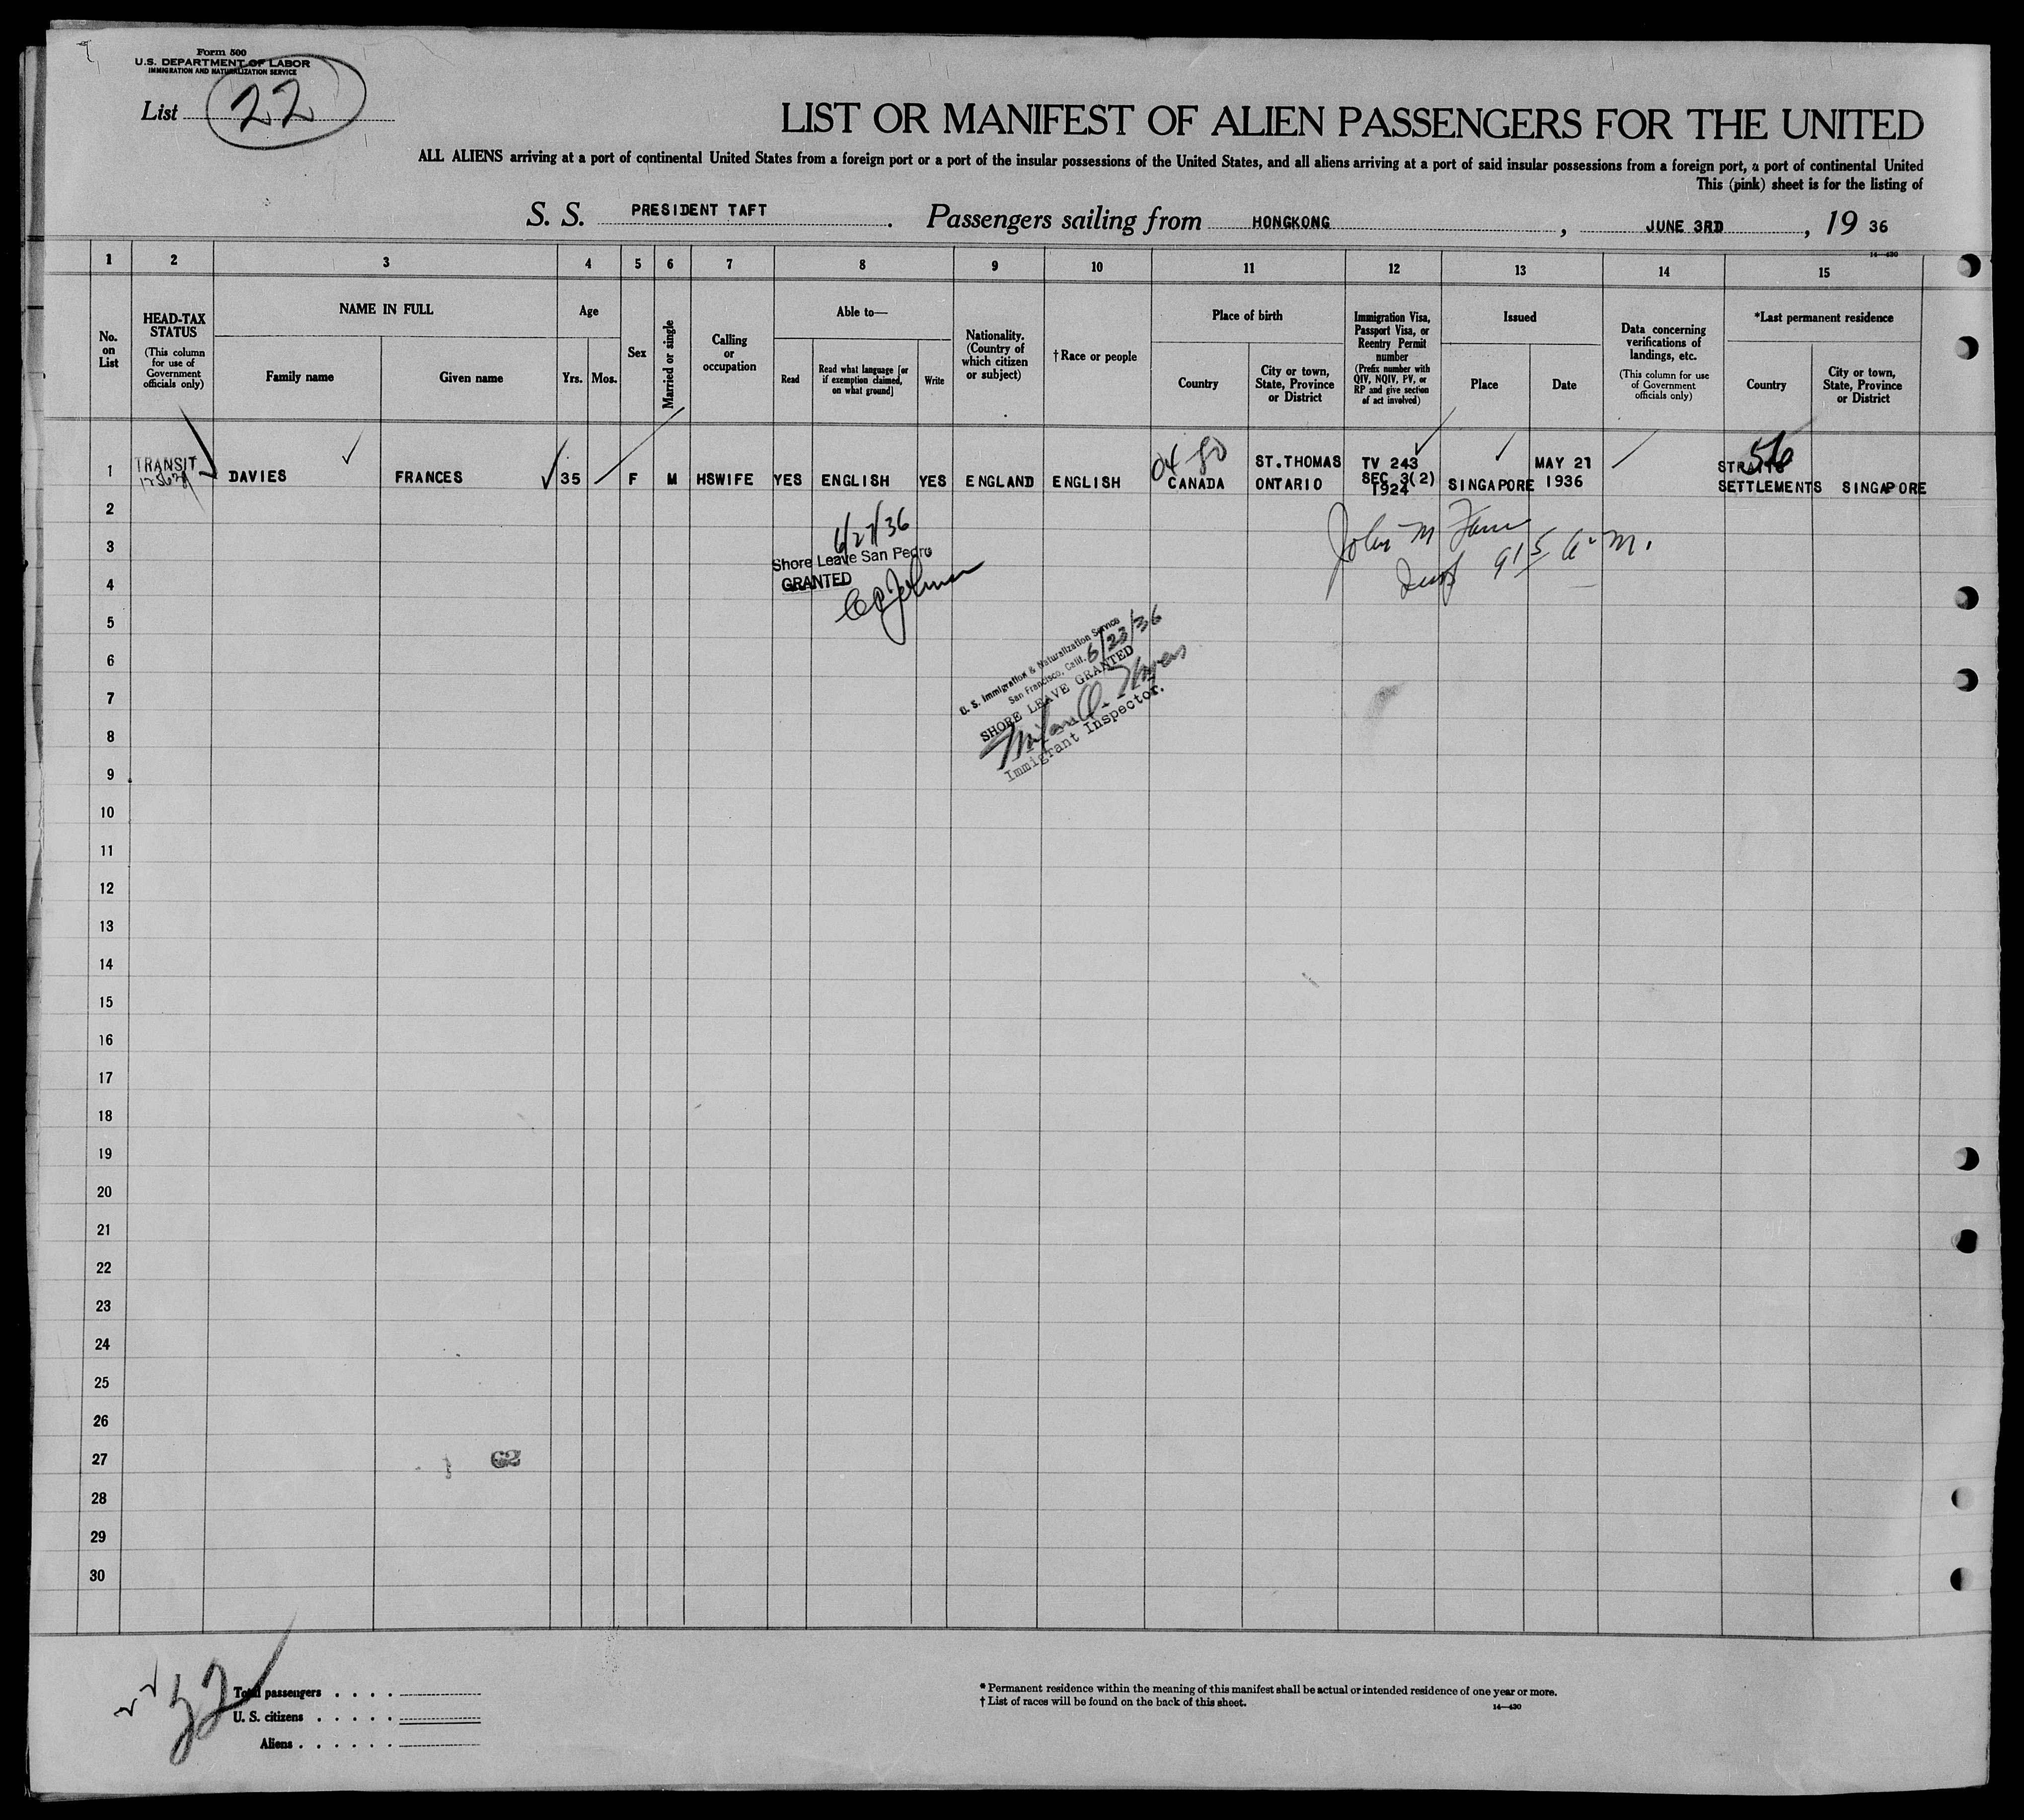 Form 500
U.S. DEPARTMENT OF LABOR
IMMIGRATION AND NATURALIZATION SERVICE
List 22
LIST OR MANIFEST OF ALIEN PASSENGERS FOR THE UNITED
ALL ALIENS arriving at a port of continental United States from a foreign port or a port of the insular possessions of the United States, and all aliens arriving at a port of said insular possessions from a foreign port, a port of continental United
This (pink) sheet is for the listing of
S. S. PRESIDENT TAFT. Passengers sailing from HONGKONG, JUNE 3RD, 19 36
14—430
1 2 3 4 5 6 7 8 9 10 11 12 13 14 15
No. on List
HEAD-TAX STATUS
(This column for use of Government officials only)
NAME IN FULL
Family name
Given name
Age
Yrs. Mos.
Sex
Married or single
Calling or occupation
Able to—
Read
Read what language [or if exemption claimed, on what ground]
Write
Nationality. (Country of which citizen or subject)
†Race or people
Place of birth
Country
City or town, State, Province or District
Immigration Visa, Passport Visa, or Reentry Permit number
(Prefix number with QIV, NQIV, PV, or RP and give section of act involved)
Issued
Place
Date
Data concerning verifications of landings, etc.
(This column for use of Government officials only)
*Last permanent residence
Country
City or town, State, Province or District
1 TRANSIT DAVIES FRANCES 35 F M HSWIFE YES ENGLISH YES ENGLAND ENGLISH 04 80 CANADA ST.THOMAS ONTARIO TV 243 SEC 3(2) 1924 SINGAPORE MAY 21 1936 56 STRAITS SETTLEMENTS SINGAPORE
2
3
4
5
6
7
8
9
10
11
12
13
14
15
16
17
18
19
20
21
22
23
24
25
26
27
28
29
30
6/27/36
Shore Leave San Pedro
GRANTED
John M
915 A.M.
U. S. Immigration & Naturalization Service
San Francisco, Calif. 6/23/36
SHORE LEAVE GRANTED
Immigrant Inspector.
62
Total passengers
U. S. citizens
Aliens
* Permanent residence within the meaning of this manifest shall be actual or intended residence of one year or more.
† List of races will be found on the back of this sheet.
14—430